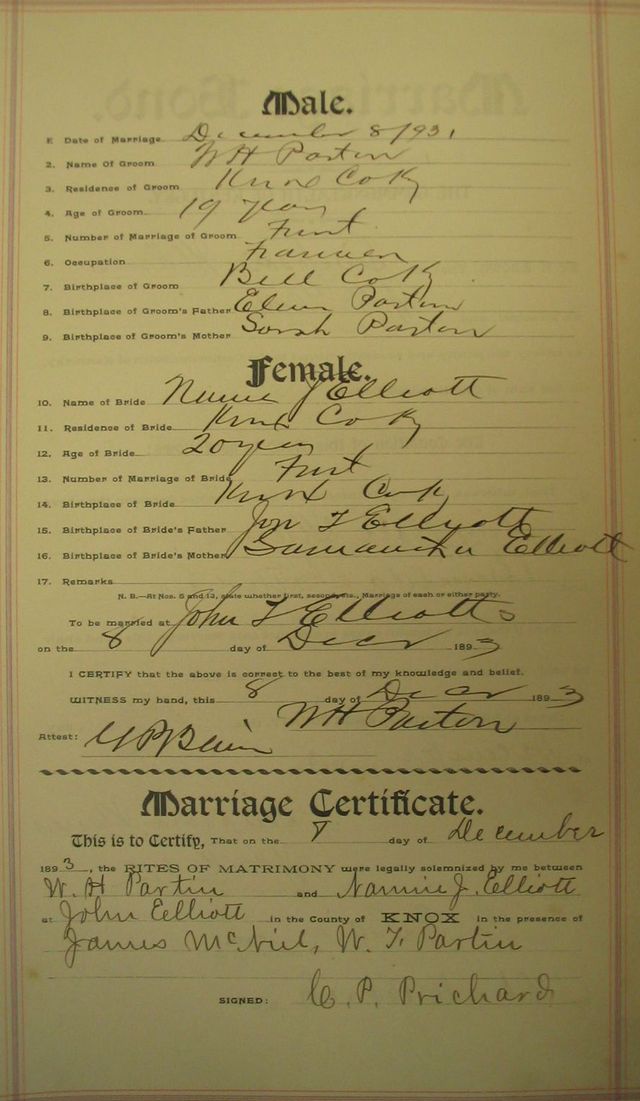 Male.
1. Date of Marriage December 8/93,
2. Name Of Groom WH Partin
3. Residence of Groom Knox Co Ky
4. Age of Groom 19 years
5. Number of Marriage of Groom First
6. Occupation Farmer
7. Birthplace of Groom Bell Co K
8. Birthplace of Groom's Father Partin
9. Birthplace of Groom's Mother Sarah Partin
Female.
10. Name of Bride J Elliott
11. Residence of Bride Knox Co Ky
12. Age of Bride 20 years
13. Number of Marriage of Bride First
14. Birthplace of Bride Knox Co K
15. Birthplace of Bride's Father Elliott
16. Birthplace of Bride's Mother Samantha Elliott
17. Remarks
N. B.—At Nos. 5 and 13, state whether first, second, etc., Marriage of each or either party.
To be married at John Elliotts
on the 8 day of Decr 1893
I CERTIFY that the above is correct to the best of my knowledge and belief.
WITNESS my hand, this 8 day of Decr 1893
WH Partin
Attest:
Marriage Certificate.
This is to Certify, That on the 8 day of December
1893, the RITES OF MATRIMONY were legally solemnized by me between
W. H Partin and Nannie J. Elliott
at John Eelliott in the County of KNOX in the presence of
James McNiel, W. F. Partin
SIGNED: C. P. Prichard